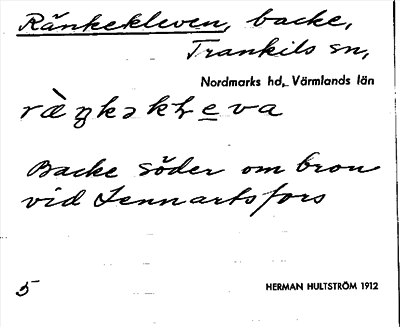 Ränkekleven, backe,
Trankils sn,
Nordmarks hd, Värmlands län
Backe söder om bron
vid Lennartsfors
5 HERMAN HULTSTRÖM 1912